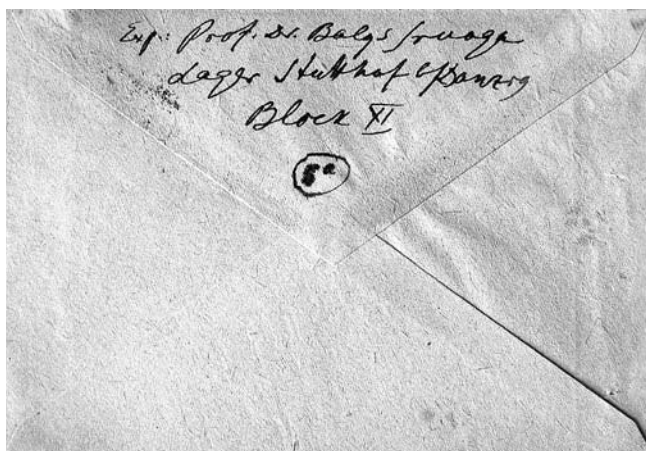 Exp: Prof. Dr. Balys Sruoga
Lager Stutthof b/Danzig
Block XI